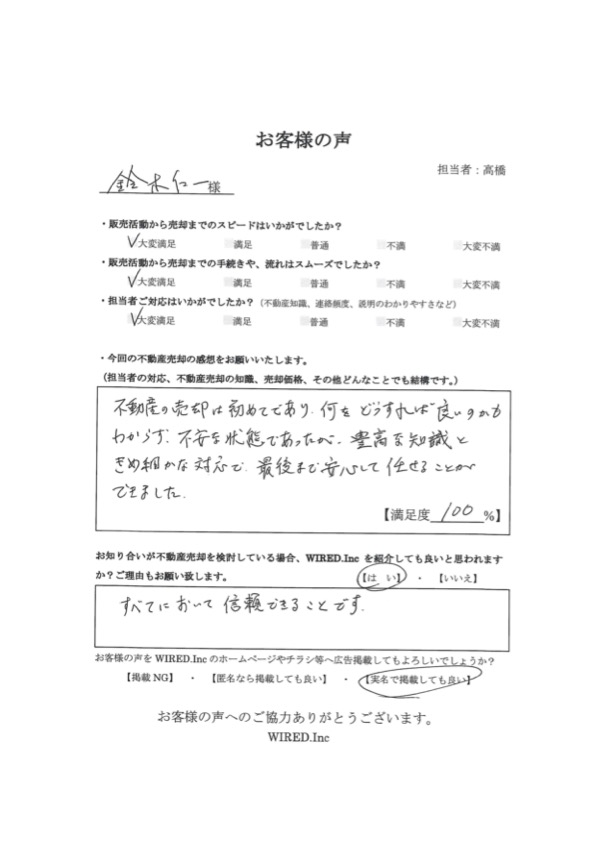 お客様の声
担当者：高橋
鈴木仁一様
・販売活動から売却までのスピードはいかがでしたか？
✓大変満足 満足 普通 不満 大変不満
・販売活動から売却までの手続きや、流れはスムーズでしたか？
✓大変満足 満足 普通 不満 大変不満
・担当者ご対応はいかがでしたか？（不動産知識、連絡頻度、説明のわかりやすさなど）
✓大変満足 満足 普通 不満 大変不満
・今回の不動産売却の感想をお願いいたします。
（担当者の対応、不動産売却の知識、売却価格、その他どんなことでも結構です。）
不動産の売却は初めてであり、何をどうすれば良いのかも
わからず、不安な状態であったが、豊富な知識と
きめ細かな対応で、最後まで安心して任せることが
できました。
【満足度 100 %】
お知り合いが不動産売却を検討している場合、WIRED.Inc を紹介しても良いと思われます
か？ご理由もお願い致します。 【はい】 ・ 【いいえ】
すべてにおいて信頼できることです。
お客様の声を WIRED.Inc のホームページやチラシ等へ広告掲載してもよろしいでしょうか？
【掲載 NG】 ・ 【匿名なら掲載しても良い】 ・ 【実名で掲載しても良い】
お客様の声へのご協力ありがとうございます。
WIRED.Inc